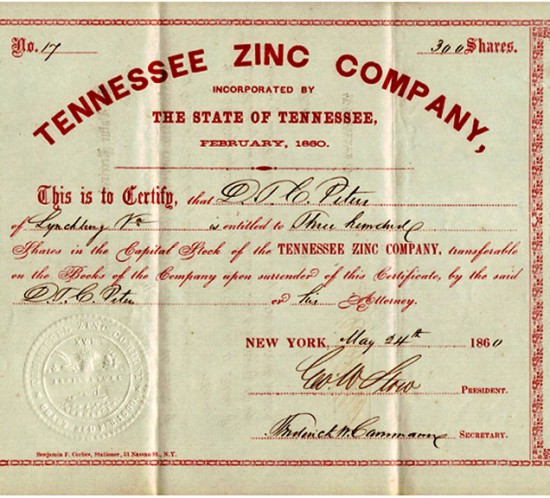 No. 17 300 Shares.
TENNESSEE ZINC COMPANY,
INCORPORATED BY
THE STATE OF TENNESSEE,
FEBRUARY, 1860.
This is to Certify, that D. T. C. Peters
of Lynchburg Va is entitled to Three hundred
Shares in the Capital Stock of the TENNESSEE ZINC COMPANY, transferable
on the Books of the Company upon surrender of this Certificate, by the said
D. T. C. Peters or his Attorney.
NEW YORK, May 24th 1860
Geo W Stow PRESIDENT.
Frederick W. Cammann SECRETARY.
ZINC COMPANY
Benjamin F. Corlies, Stationer, 51 Nassau St., N.Y.